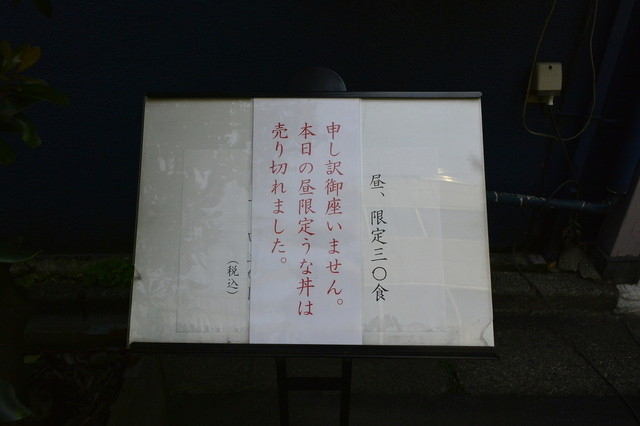 昼、限定三〇食
申し訳御座いません。
本日の昼限定うな丼は
売り切れました。
（税込）